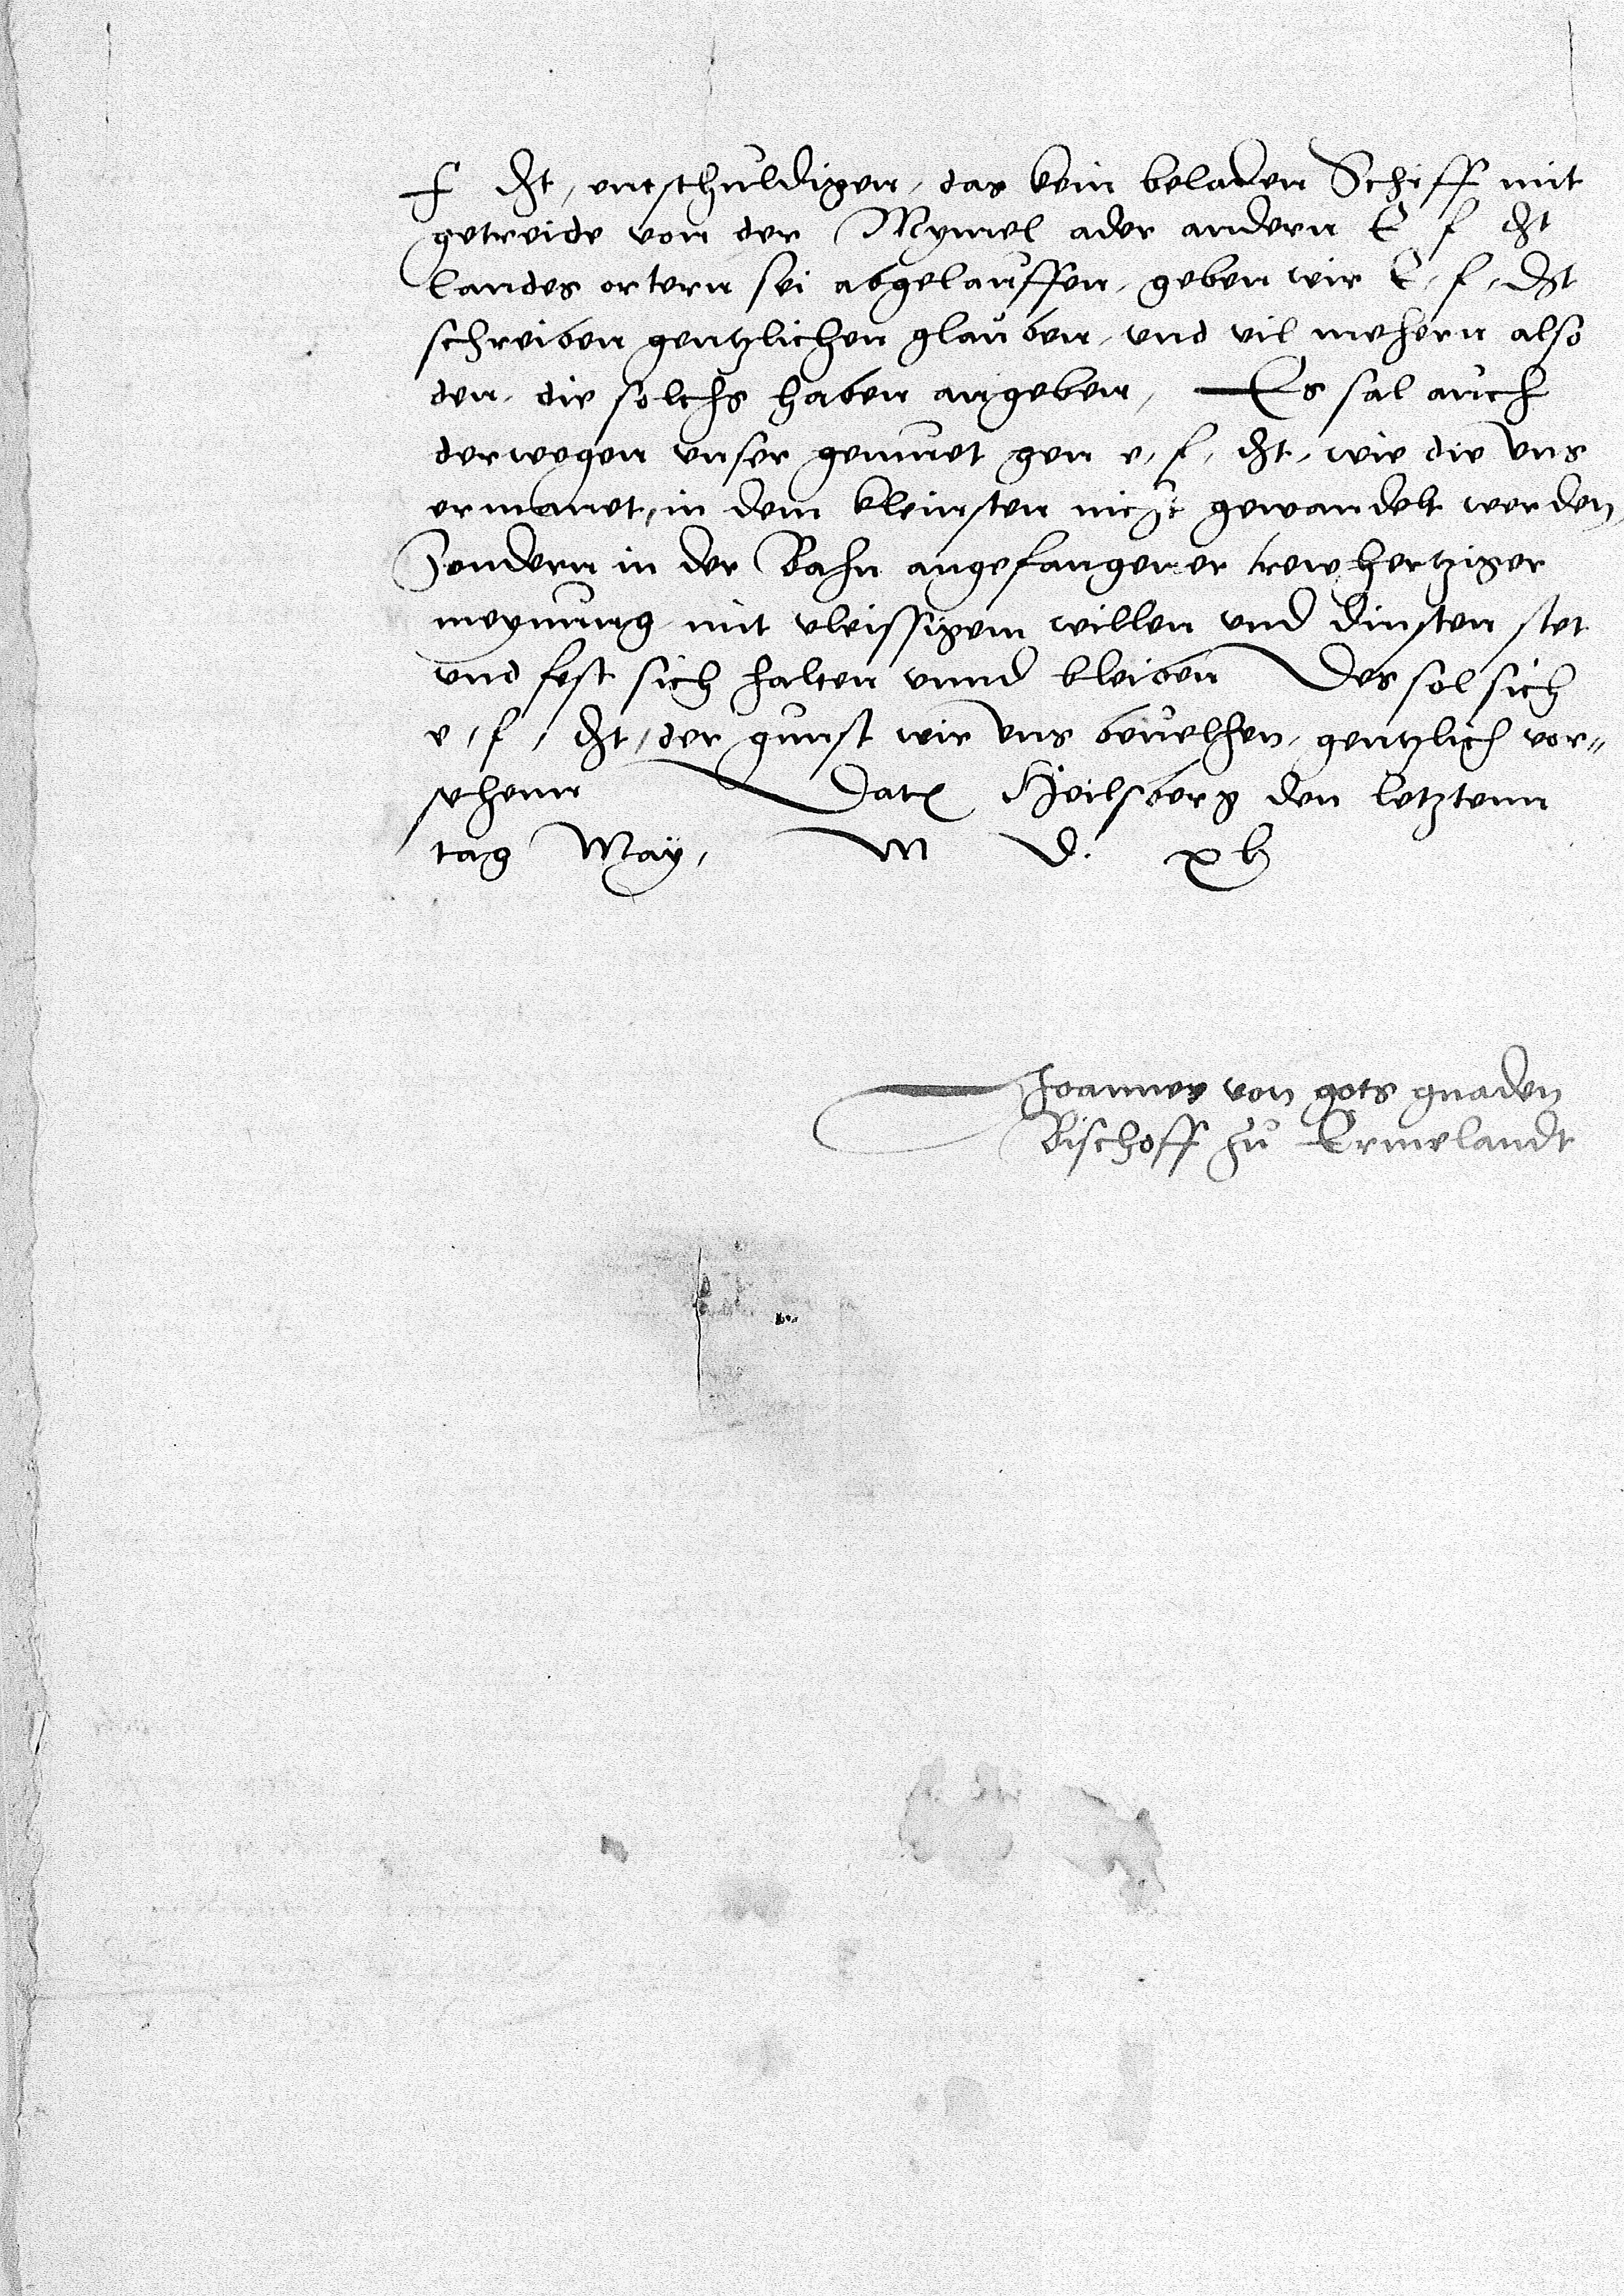 f dht, entschuldigen, das kein beladen Schiff mit
getreide von der Mymmel ader andern E f dht
landes ortern sei abgelauffen, geben wir E, f, dht
schreiben gentzlichen glauben, und vil mehern also
den, die solchs haben angeben, Es sal auch
derwegen unser gemuet gen e, f, dht, wie die uns
ermanet, in dem kleinsten nicht gewandelt werden,
Sondern in der Bahn angefangener trewhertziger
meynung mit vleissigem willen und dinsten stet
und fest sich halten unnd bleiben Des sol sich
e, f, dht, der gunst wir uns bevelhen, gentzlich vor=
sehenn Dat Heilsberg den letztenn
tag May, M D. xl
Joannes von gots gnaden
Bischoff zu Ermelandt